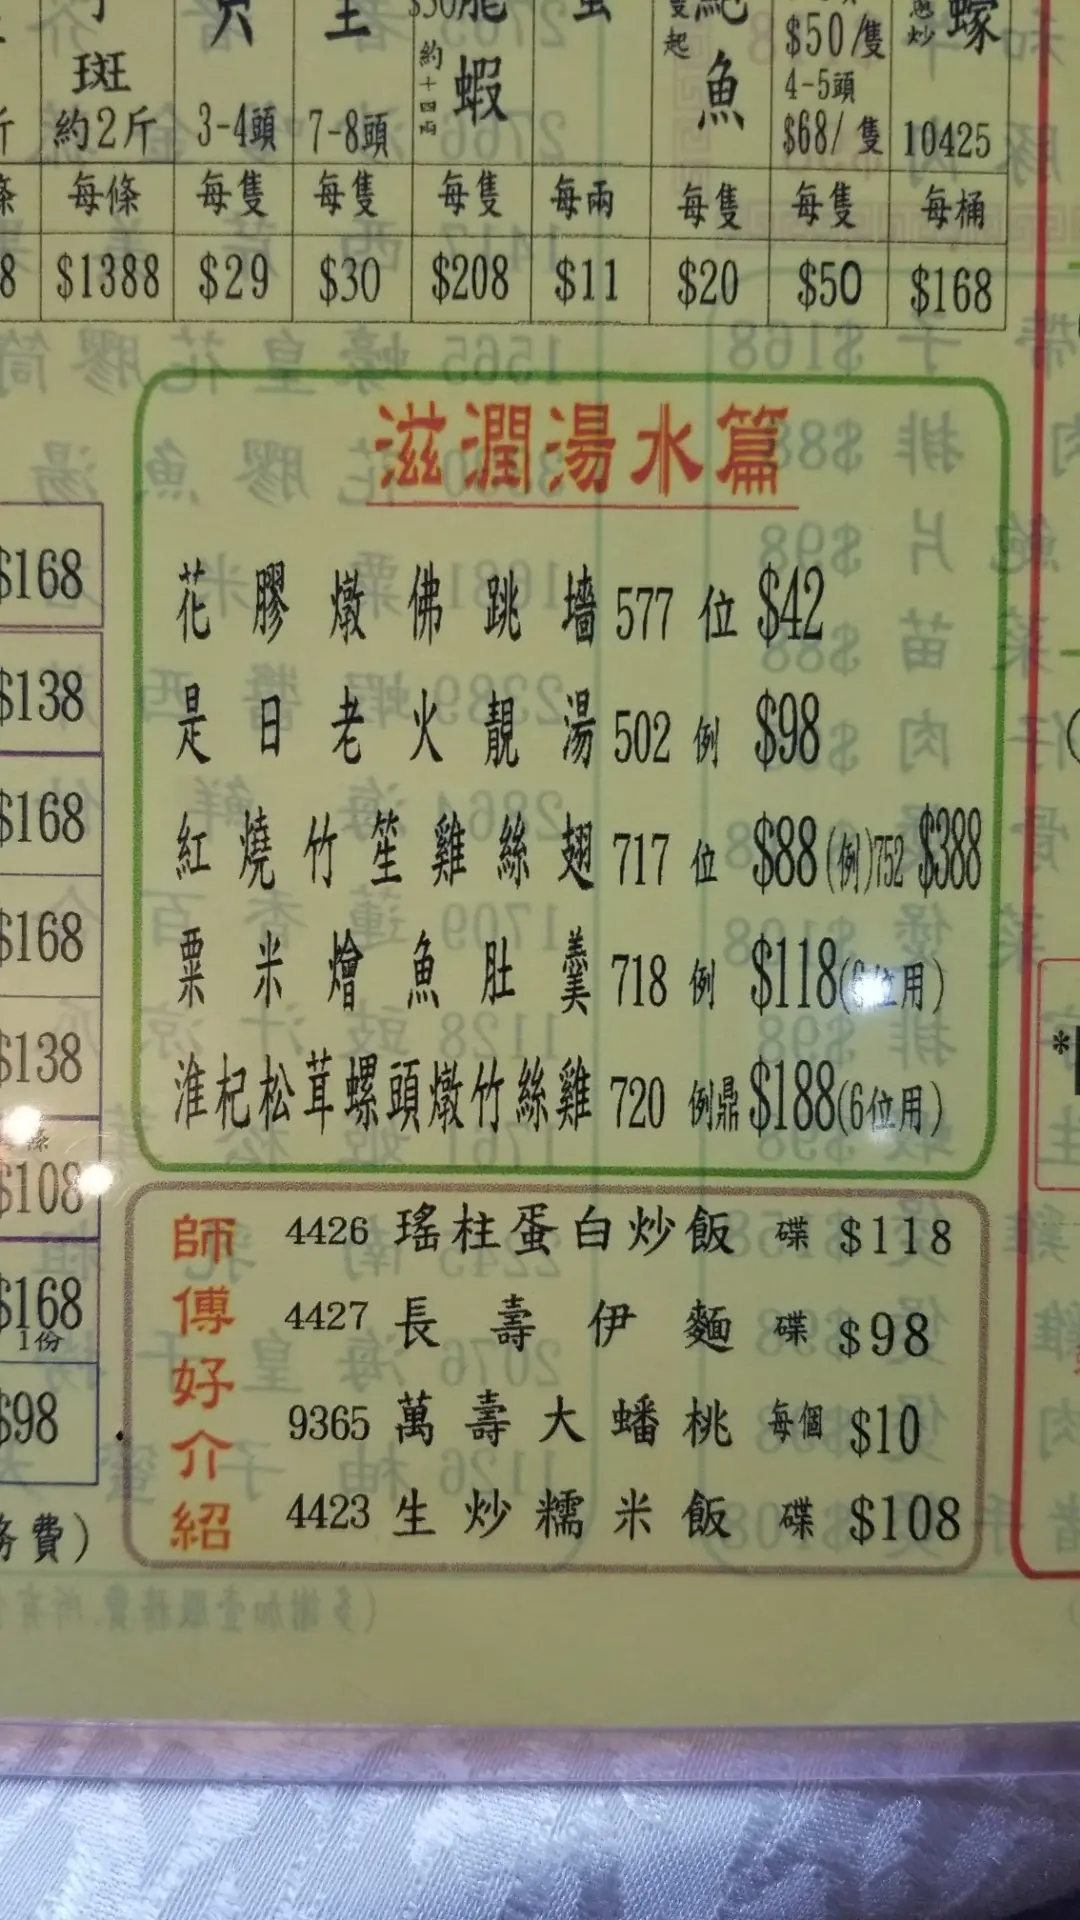 斑
約2斤
3-4頭
7-8頭
約十四兩
蝦
起
鮑魚
$50/隻
4-5頭
$68/隻
炒
蠔
10425
每條
每隻
每隻
每隻
每兩
每隻
每隻
每桶
$1388
$29
$30
$208
$11
$20
$50
$168
滋潤湯水篇
花膠燉佛跳墻 577 位 $42
是日老火靚湯 502 例 $98
紅燒竹笙雞絲翅 717 位 $88(例)752 $388
粟米燴魚肚羹 718 例 $118(6位用)
淮杞松茸螺頭燉竹絲雞 720 例鼎 $188(6位用)
師傅好介紹
4426 瑤柱蛋白炒飯 碟 $118
4427 長壽伊麵 碟 $98
9365 萬壽大蟠桃 每個 $10
4423 生炒糯米飯 碟 $108
$168
$138
$168
$168
$138
$108
$168
1份
$98
費)